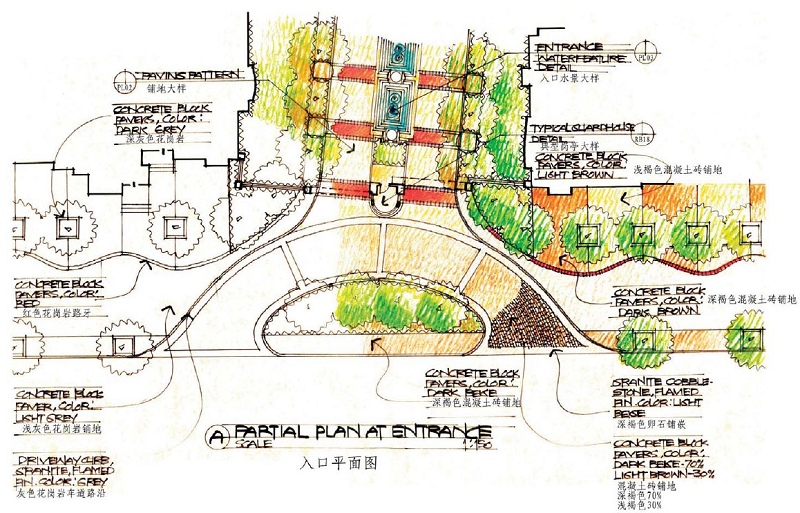 PAVING PATTERN
PL02
铺地大样
CONCRETE BLOCK
PAVERS, COLOR:
DARK GREY
深灰色花岗岩
ENTRANCE
WATERFEATURE
DETAIL
1
PL03
入口水景大样
TYPICAL GUARDHOUSE
DETAIL
RB18
典型岗亭大样
CONCRETE BLOCK
PAVERS, COLOR:
LIGHT BROWN
浅褐色混凝土砖铺地
CONCRETE BLOCK
PAVERS, COLOR:
RED
红色花岗岩路牙
CONCRETE BLOCK
PAVERS, COLOR:
DARK BROWN
深褐色混凝土砖铺地
CONCRETE BLOCK
PAVER, COLOR:
LIGHT GREY
浅灰色花岗岩铺地
CONCRETE BLOCK
PAVERS, COLOR:
DARK BEIGE
深褐色混凝土砖铺地
GRANITE COBBLE-
STONE, FLAMED
FIN. COLOR: LIGHT
BEIGE
深褐色卵石铺嵌
DRIVEWAY CURB,
GRANITE, FLAMED
FIN. COLOR: GREY
灰色花岗岩车道路沿
A PARTIAL PLAN AT ENTRANCE
SCALE 1:150
入口平面图
CONCRETE BLOCK
PAVERS, COLOR:
DARK BEIGE-70%
LIGHT BROWN-30%
混凝土砖铺地
深褐色70%
浅褐色30%